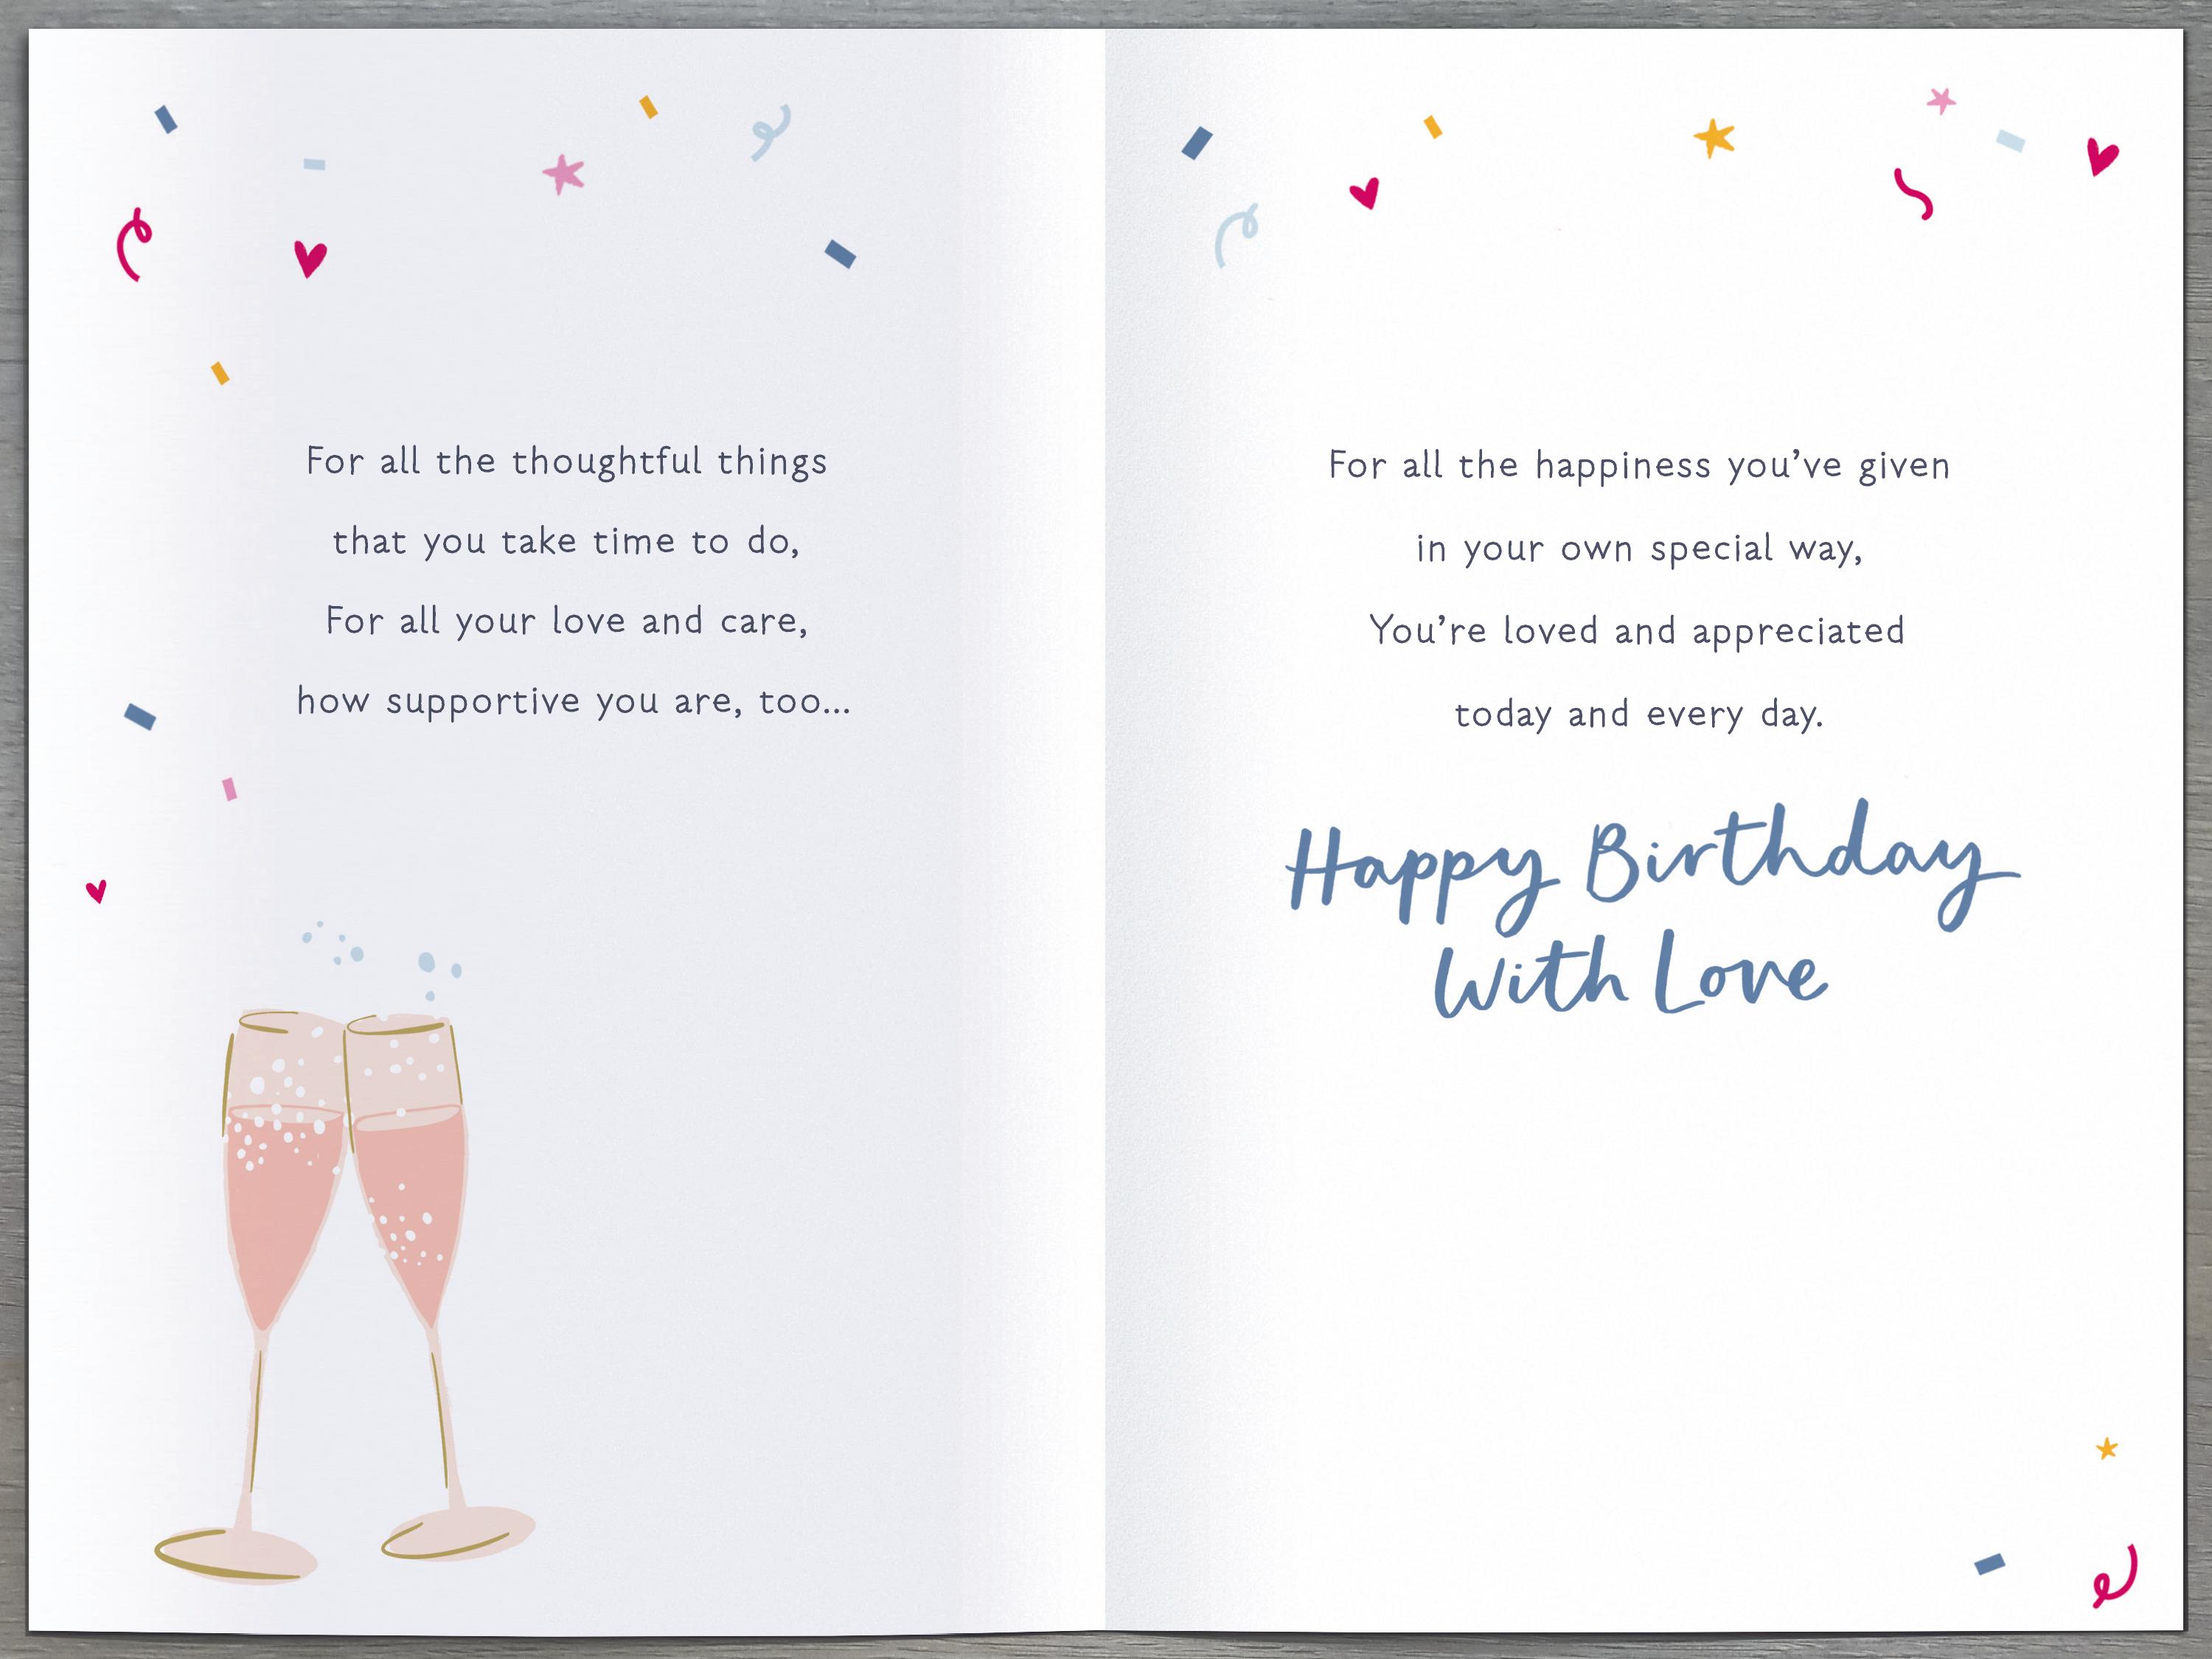 For all the thoughtful things
that you take time to do,
For all your love and care,
how supportive you are, too...
For all the happiness you’ve given
in your own special way,
You’re loved and appreciated
today and every day.
Happy Birthday
With Love